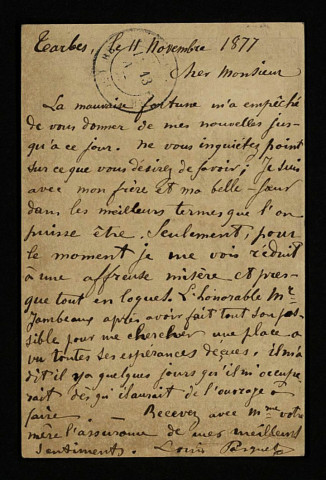 Tarbes, le 11 Novembre 1877
Cher Monsieur
La mauvaise fortune m'a empêché
de vous donner de mes nouvelles jus-
qu'à ce jour. Ne vous inquiétez point
sur ce que vous désirez de savoir; Je suis
avec mon frère et ma belle-sœur
dans les meilleurs termes que l'on
puisse être. Seulement, pour
le moment je me vois réduit
à une affreuse misère et pres-
que tout en loques. L'honorable Mr
Jambeaux après avoir fait tout son pos-
sible pour me chercher une place a
vu toutes ses espérances déçues, il m'a
dit il y a quelques jours qu'il m'occupe-
rait dès qu'il aurait de l'ouvrage à
faire. — Recevez avec Mme votre
mère l'assurance de mes meilleurs
sentiments. Louis